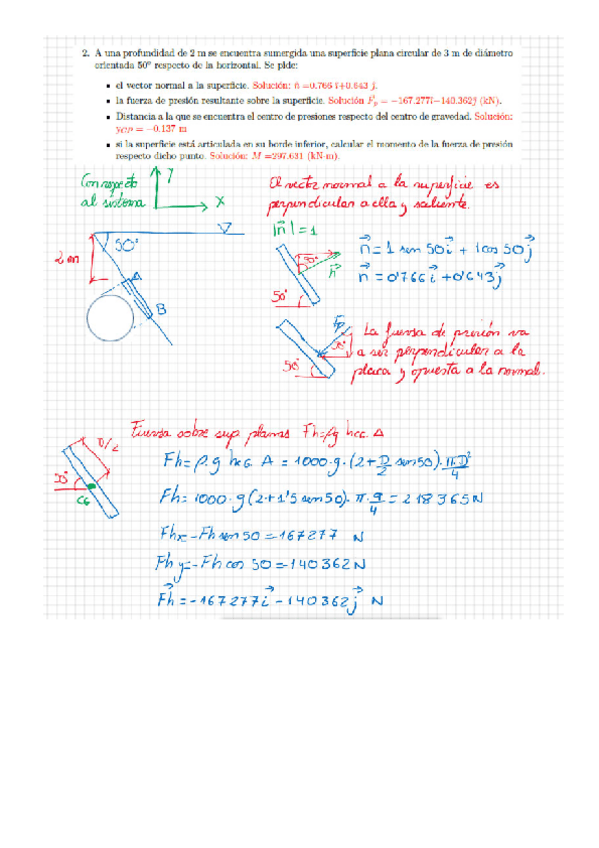 2. A una profundidad de 2 m se encuentra sumergida una superficie plana circular de 3 m de diámetro
orientada 50º respecto de la horizontal. Se pide:
▪ el vector normal a la superficie. Solución: n̂ =0.766 î+0.643 ĵ.
▪ la fuerza de presión resultante sobre la superficie. Solución F⃗p = −167.277î−140.362ĵ (kN).
▪ Distancia a la que se encuentra el centro de presiones respecto del centro de gravedad. Solución:
yCP = −0.137 m
▪ si la superficie está articulada en su borde inferior, calcular el momento de la fuerza de presión
respecto dicho punto. Solución: M =297.631 (kN·m).
Con respecto
al sistema
y
x
El vector normal a la superficie es
perpendicular a ella y saliente.
|n⃗| = 1
50°
2m
A
B
50°
n⃗
50°
n⃗ = 1 sen 50 i⃗ + 1 cos 50 j⃗
n⃗ = 0'766 i⃗ + 0'643 j⃗
Fp
50°
50°
La fuerza de presión va
a ser perpendicular a la
placa y opuesta a la normal.
Fuerza sobre sup. planas Fh=ρg hcG A
D/2
50°
CG
Fh = ρ.g hcG. A = 1000·g·(2+D/2 sen50)·π·D²/4
Fh = 1000·g(2+1'5 sen50)·π·9/4 = 218365N
Fhx = -Fh sen 50 = -167277 N
Fhy = -Fh cos 50 = -140362N
F⃗h = -167277 i⃗ - 140362 j⃗ N